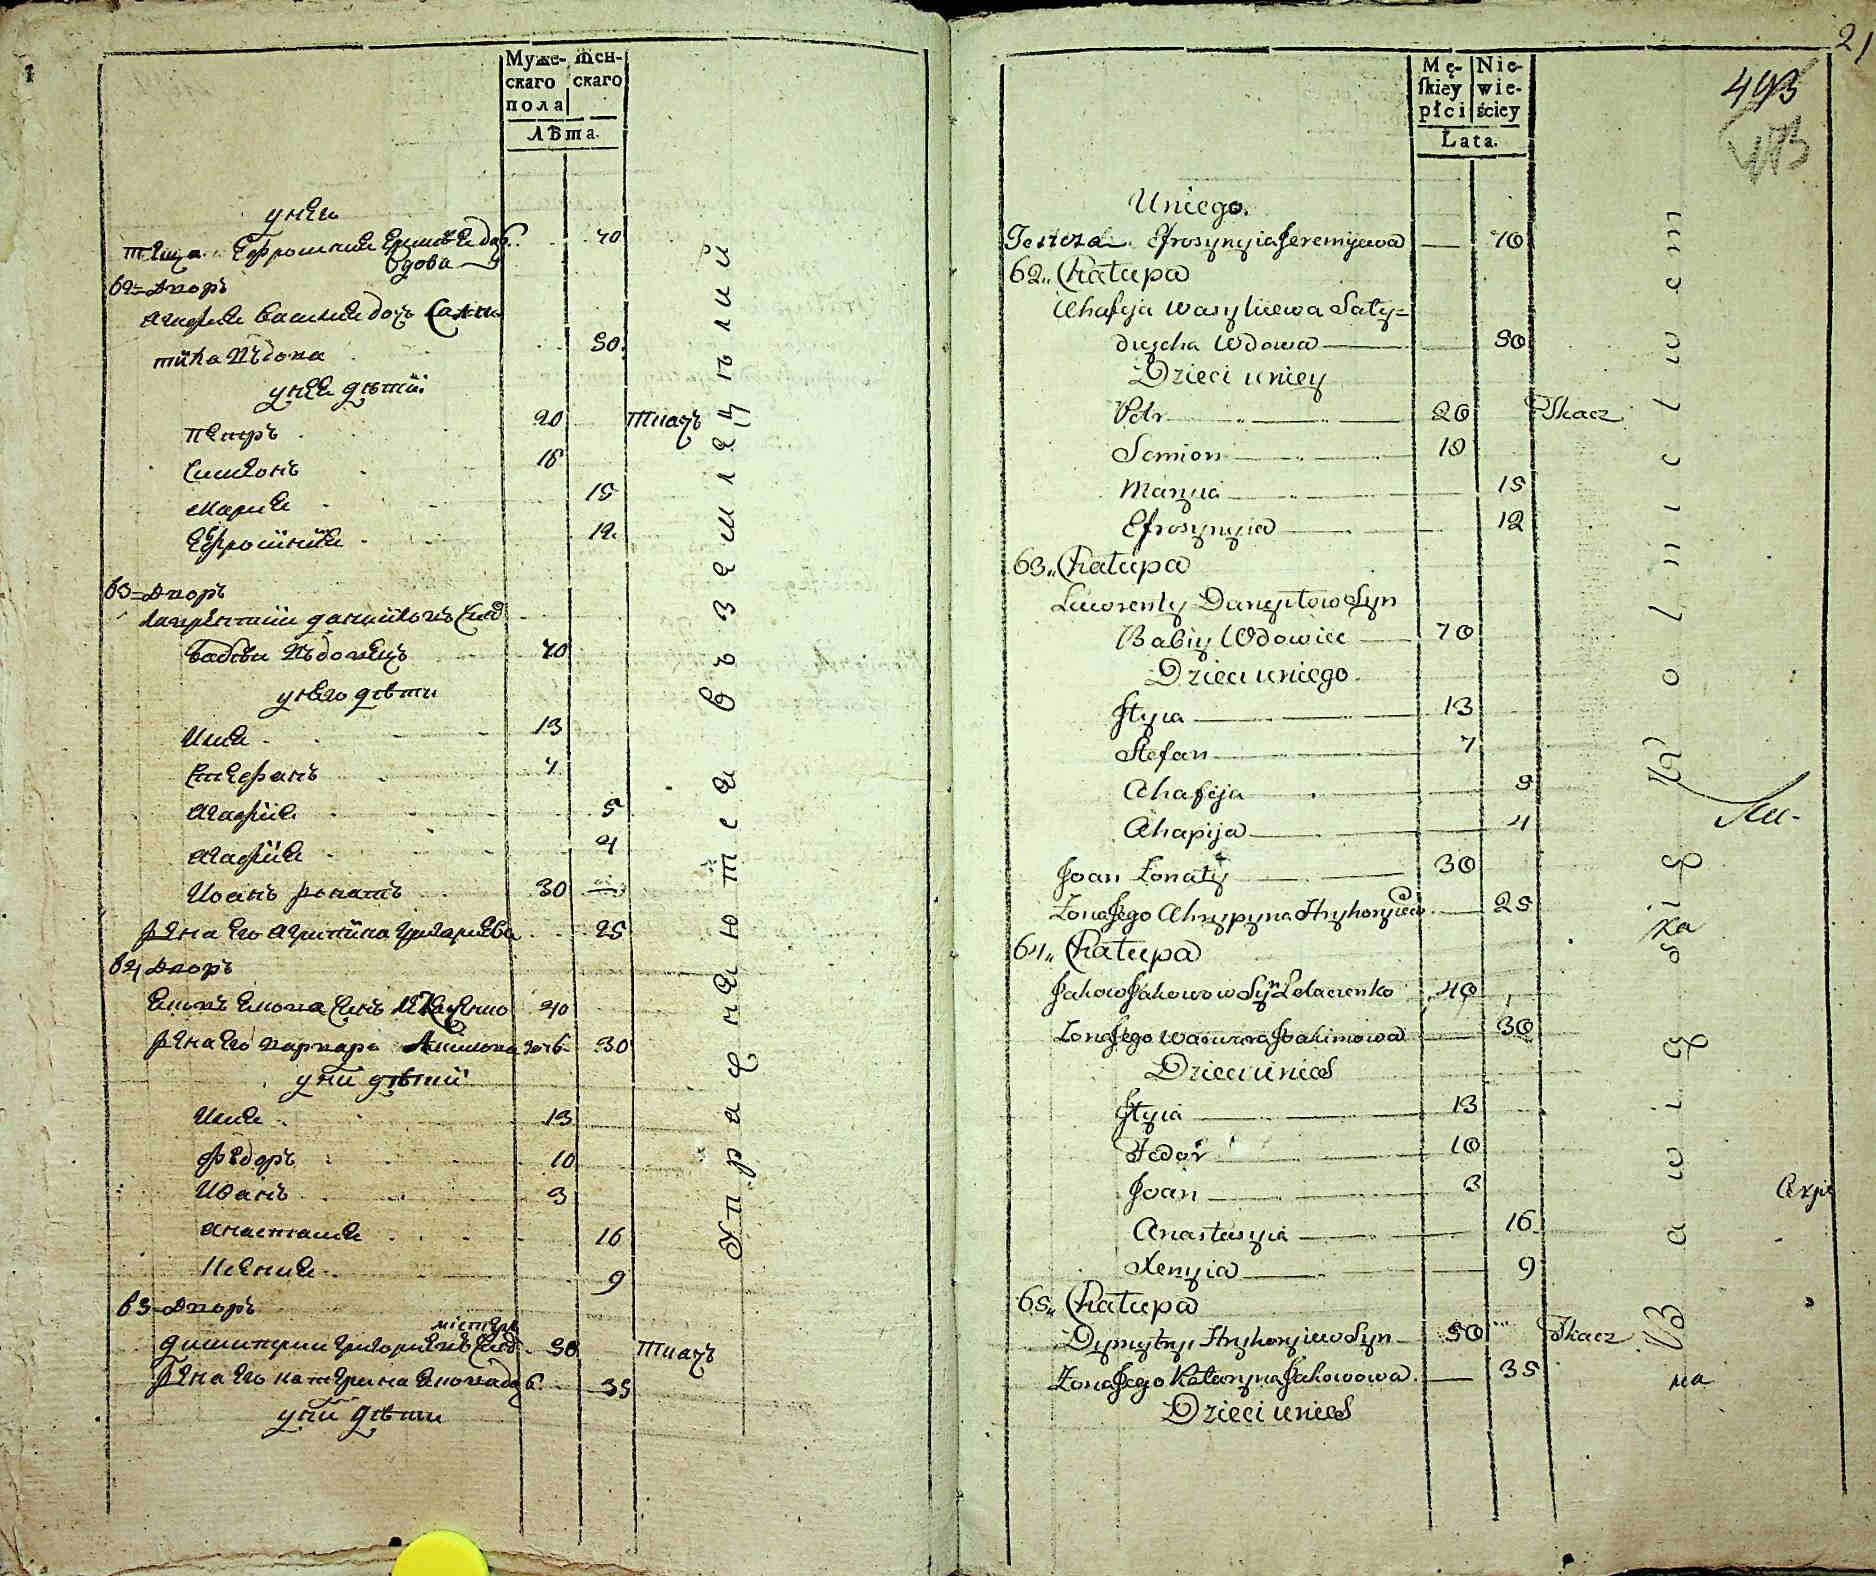 Муже- Жен-
скаго скаго
пола
Лѣта.
унего
теща Ефросиния Еремѣева доч. 70
вдова
62 = Дворъ
Агафия василиева дочь Салди
тиха вдова 50.
унея дѣтїи
Петръ 20 Ткачь
Симеонъ 18
Мария 15
Ефросинїя 12
63 = Дворъ
Лаврентии данииловъ синъ
бабїи вдовецъ 70
унего дѣти
Илия 13
Стефанъ 7
Агафїя 5
Агафїя 4
Иоанъ 30
Жена его Агрипїна Григориева 25
64 Дворъ
Яковъ Якова синъ 40
Жена его варвара Акимова дочь 30
уних дѣтїи
Илия 13
Федоръ 10
Иванъ 3
Анастасия 16
Ксения 9
65 Дворъ
Димитрии Григориевъ синъ 50 Ткачь
Жена его катерина Якова доч. 35
уних дѣти
Упражняются въ земледѣлий
21
Mę- Nie-
ſkiey wie-
płci ściey
Lata.
493
473
Uniego.
Tescza Efrosynyia Jeremijewa 70
62„ Chałupa
Ahafija Wasyliewa Sały=
dyicha Wdowa 50
Dzieci uniey
Petr 20 Tkacz
Semion 18
Maryia 15
Efrosynyia 12
63„ Chałupa
Lworenty Danyłow Syn
Babiy Wdowiec 70
Dzieci uniego
Jłyia 13
Stefan 7
Ahafija 5
Ahapija 4
Joan Łonatÿ 30
Zona Jego Ahrypyna Hryhoryiew 25
64„ Chałupa
Jakow Jakowow Syn 40
Zona Jego Warwara Joakimowa 30
Dzieci unich
Jłyia 13
Fedor 10
Joan 3
Anastasyia 16
Xenyia 9
65„ Chałupa
Dymytry Hryhoryiew Syn 50 Tkacz
Zona Jego Kataryna Jakowowa 35
Dzieci unich
Bawią się Rolnictwem